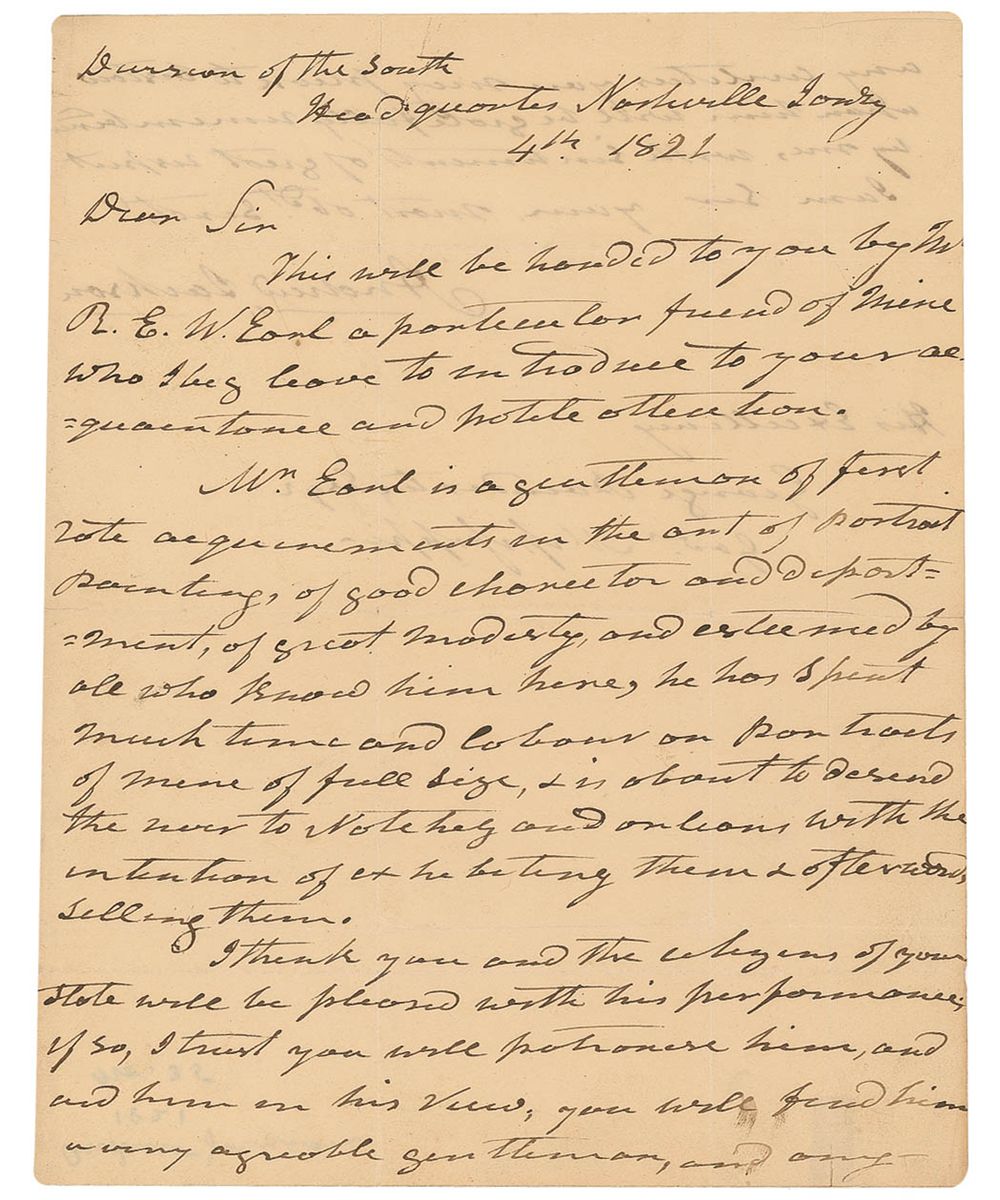 Division of the South
Head quarters Nashville Janry
4th 1821
Dear Sir
This will be handed to you by Mr
R. E. W. Earl a particular friend of mine
who I beg leave to introduce to your ac-
=quaintance and polite attention.
Mr. Earl is a gentleman of first
rate acquirements in the art of portrait
painting, of good charector and deport=
=ment, of great modesty, and esteemed by
all who know him here, he has spent
much time and labour on portraits
of mine of full size, & is about to decend
the river to Natchez and orleans with the
intention of exhibiting them & afterwards
selling them.
I think you and the citizens of your
state will be pleased with his performance,
if so, I trust you will patronise him, and
aid him in his view, you will find him
a very agreable gentleman, and any